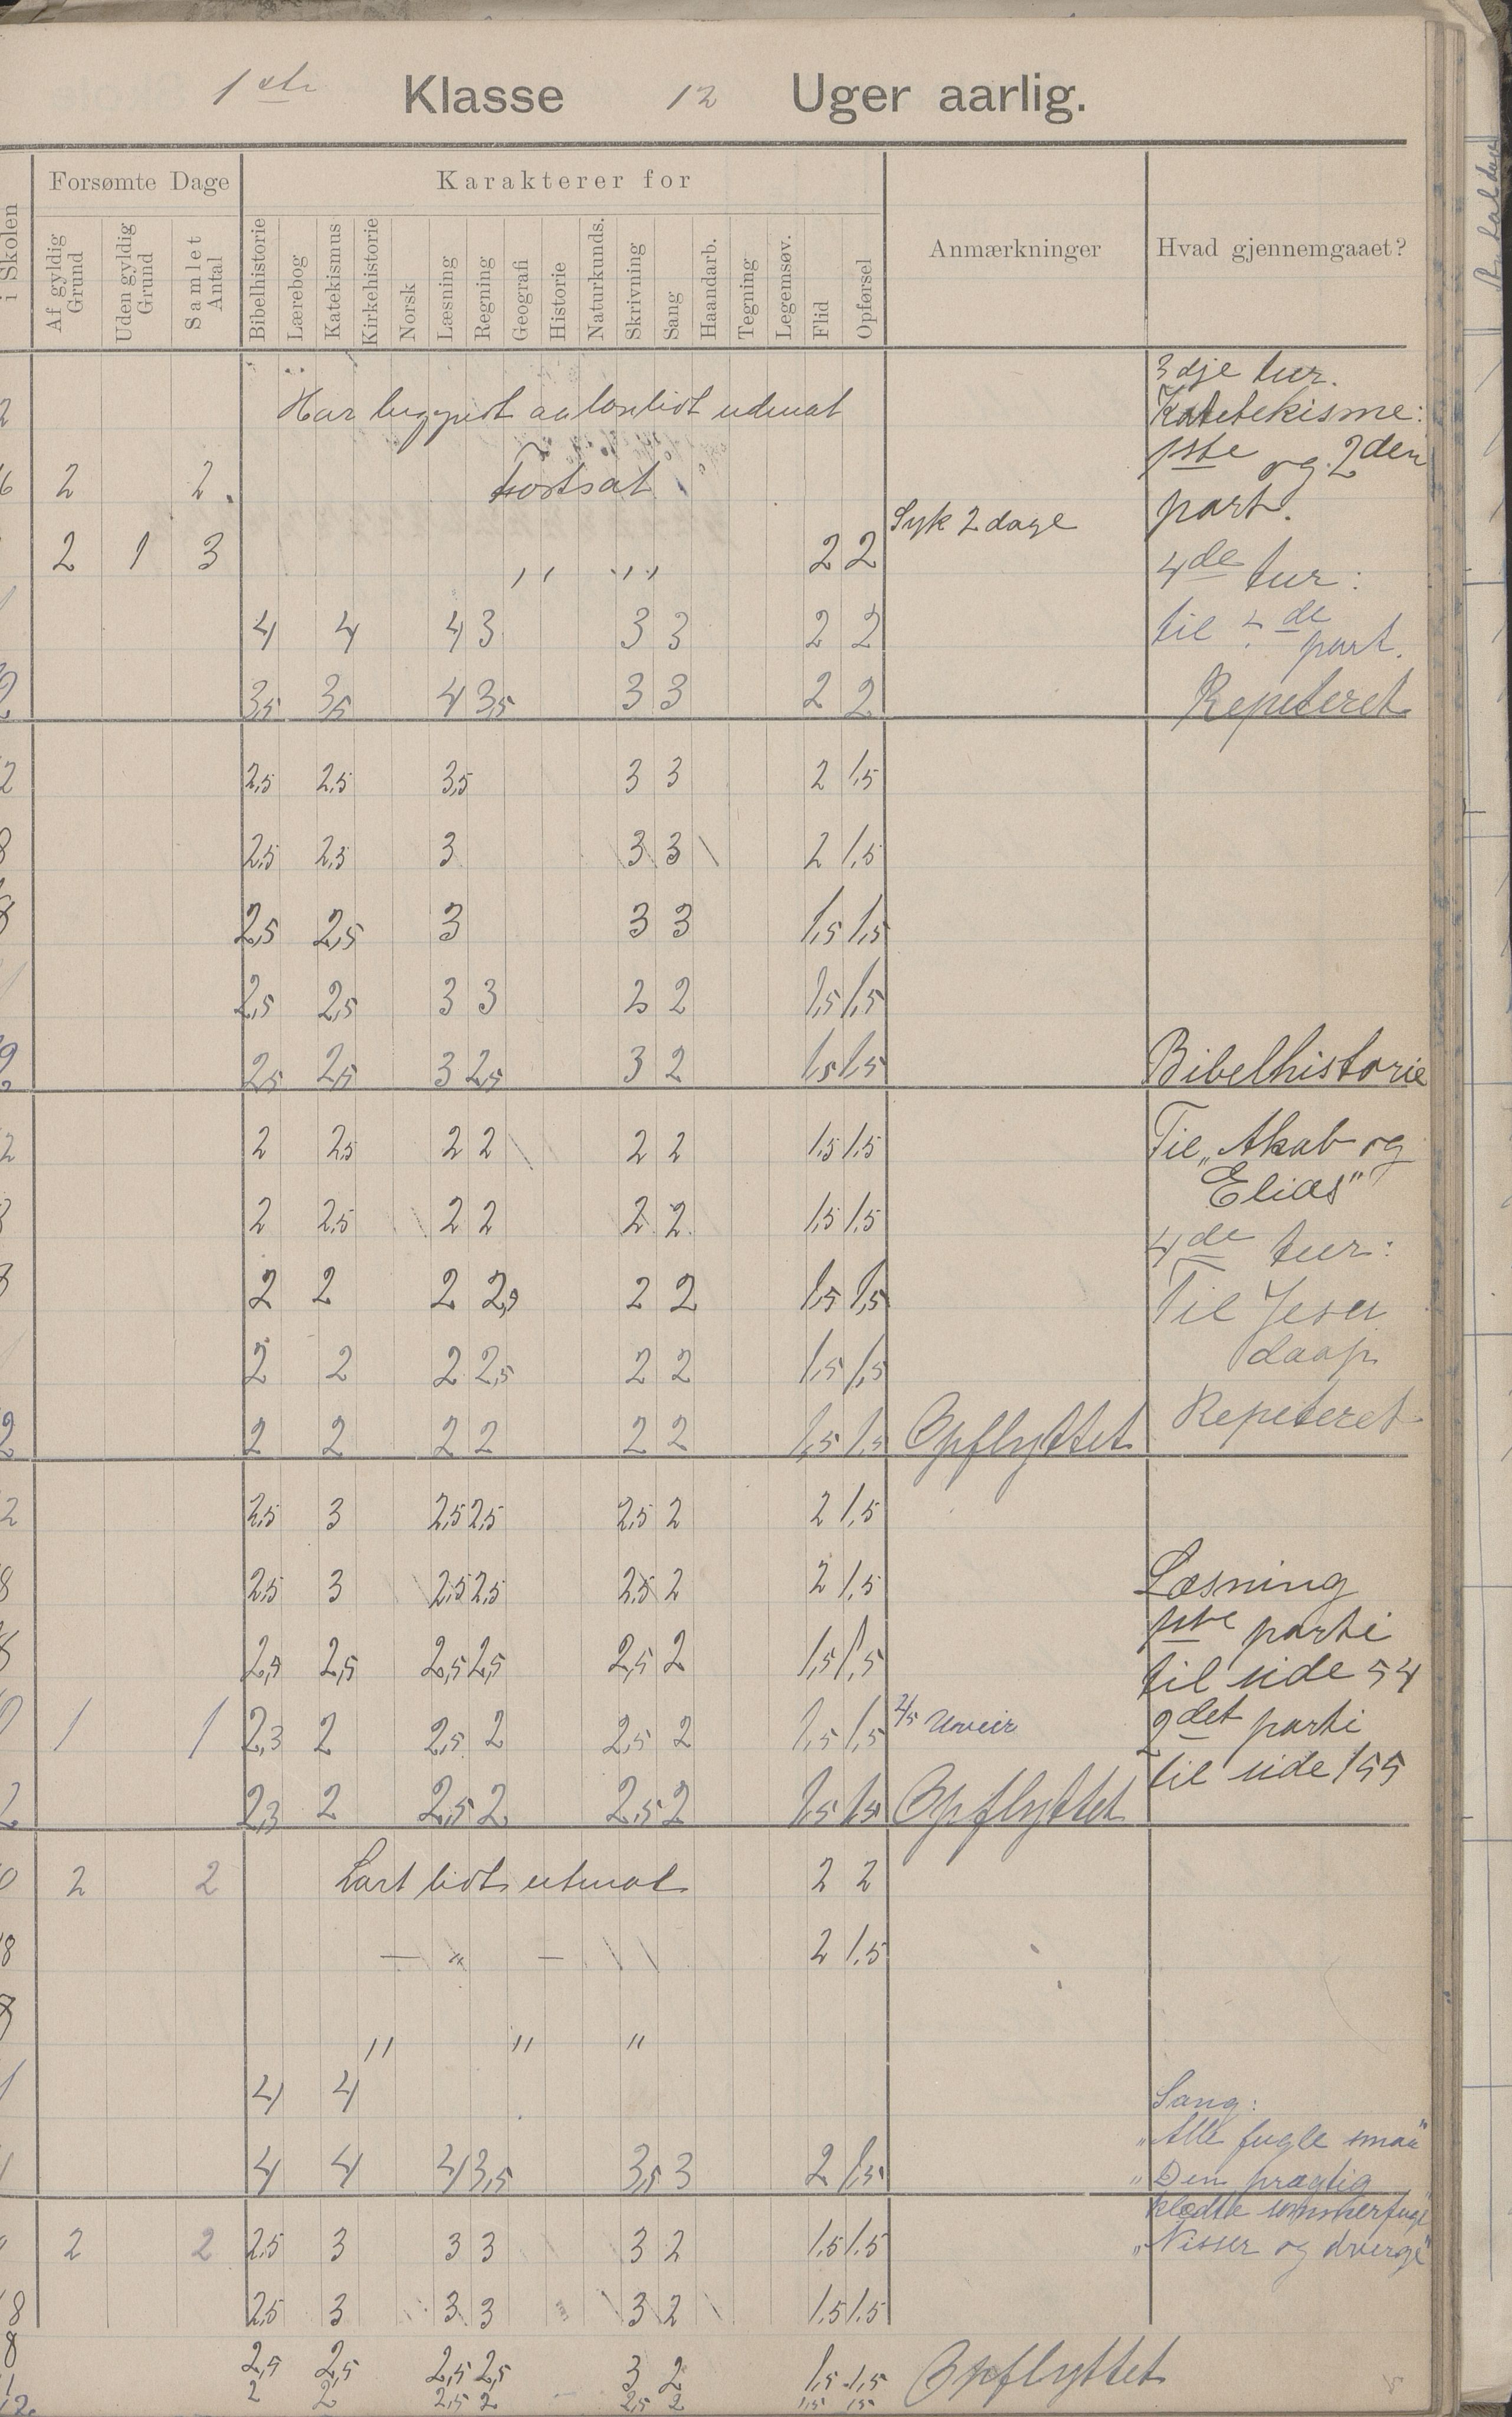 1ste Klasse 12 Uger aarlig.
i Skolen Forsømte Dage Karakterer for Anmærkninger Hvad gjennemgaaet?
Af gyldig Grund Uden gyldig Grund Samlet Antal Bibelhistorie Lærebog Katekismus Kirkehistorie Norsk Læsning Regning Geografi Historie Naturkunds. Skrivning Sang Haandarb. Tegning Legemsøv. Flid Opførsel
3dje tur.
2 Har lidt udenat Katekisme:
1ste og 2den
6 2 2 Fortsat
Syk 2 dage part.
2 1 3 " " 2 2 4de tur:
4 4 4 3 3 3 2 2 til de part.
2 3,5 3,5 4 3,5 3 3 2 2 Repeteret
2 2,5 2,5 3,5 3 3 2 1,5
8 2,5 2,5 3 3 3 2 1,5
8 2,5 2,5 3 3 3 1,5 1,5
2,5 2,5 3 3 3 2 1,5 1,5
2 2,5 2,5 3 2,5 3 2 1,5 1,5 Bibelhistorie
2 2 2,5 2 2 2 2 1,5 1,5 Til „Akab og
Elias"
8 2 2,5 2 2 2 2 1,5 1,5
4de tur:
8 2 2 2 2,5 2 2 1,5 1,5 Til Jesu
daap
2 2 2 2,5 2 2 1,5 1,5
2 2 2 2 2 2 2 1,5 1,5 Opflyttet Repeteret
2 2,5 3 2,5 2,5 2,5 2 2 1,5
8 2,5 3 2,5 2,5 2,5 2 2 1,5 Læsning
1ste parti
8 2,5 2,5 2,5 2,5 2,5 2 1,5 1,5 til side 54
1 1 2,3 2 2,5 2 2,5 2 1,5 1,5 2/5 Uveir 2det parti
til side 155
2 2,3 2 2,5 2 2,5 2 1,5 1,5 Opflyttet
0 2 2 Lært lidt utenat 2 2
8 — " — 2 1,5
8 " " "
1 4 4
Sang:
„Alle fugle smaa"
4 4 4 3,5 3,5 3 2 1,5 „Den prægtig
klædte sommerfugl"
2 2 2,5 3 3 3 3 2 1,5 1,5 „Nisser og dverge"
8 2,5 3 3 3 3 2 1,5 1,5
8 2,5 2,5 2,5 2,5 3 2 1,5 1,5 Opflyttet
12 2 2 2,5 2 2,5 2 1,5 1,5